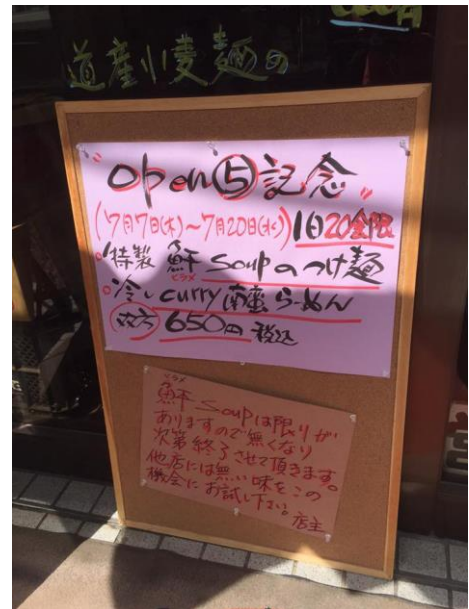 道産小麦麺の
"open⑤記念"
(7月7日(木)〜7月20日(水)) 1日20食限
・特製 鮃 soupのつけ麺
ヒラメ
・冷し curry 南蛮らーめん
双方 650円 税込
ヒラメ
鮃 soupは限りが
ありますので無くなり
次第終了させて頂きます。
他店には無い味をこの
機会にお試し下さい。
店主